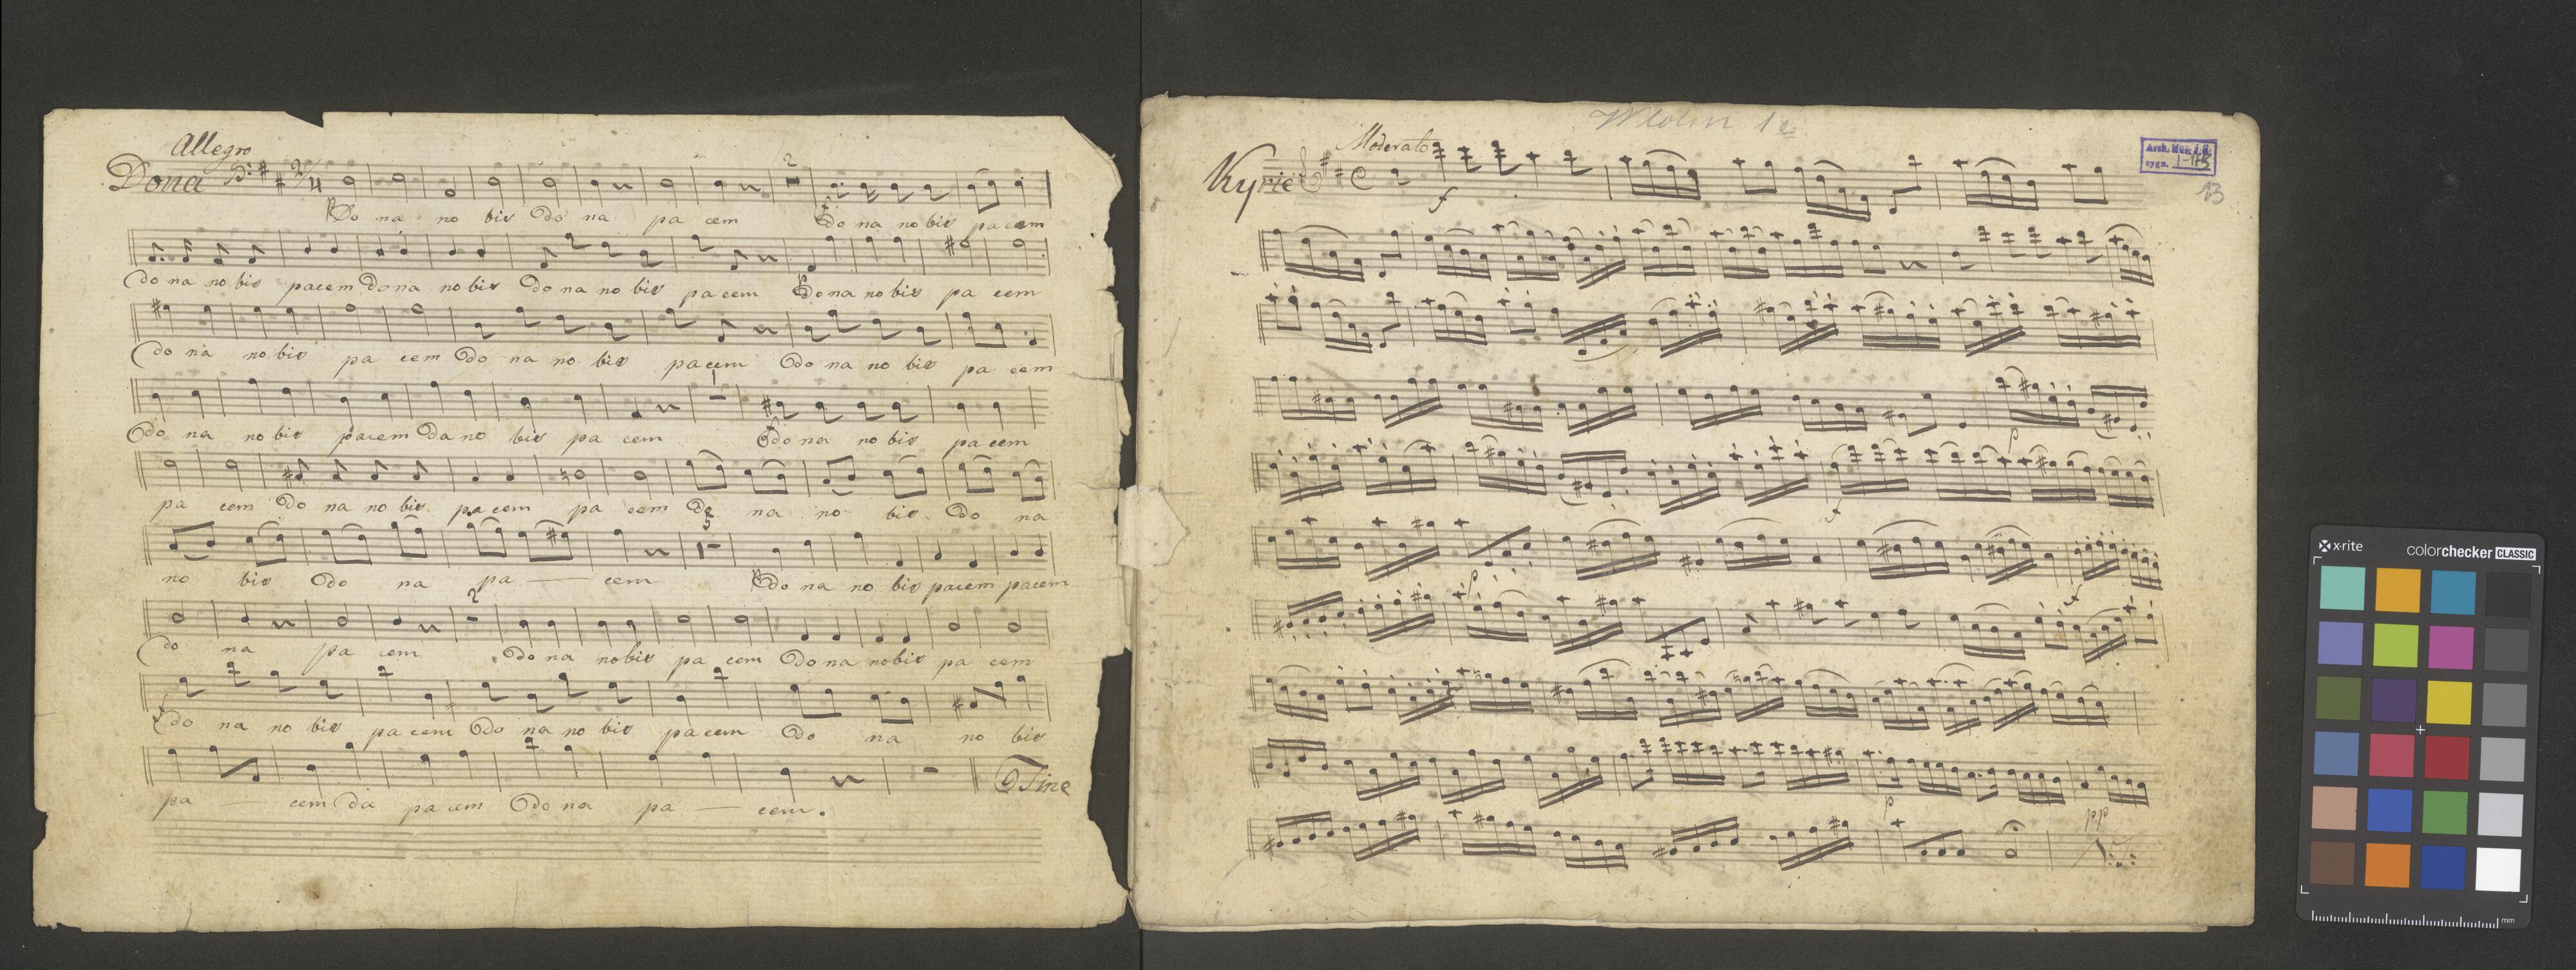 Allegro
Dona
2/4
2
Do na no bis Do na pa cem Do na no bis pa cem
do na no bis pacem do na no bis Do na no bis pa cem Do na no bis pa cem
do na no bis pa cem Do na no bis pa cem Do na no bis pa cem
1
Do na no bis pacem Da no bis pa cem Do na no bis pa cem
pa cem Do na no bis pa cem pa cem Do na no bis Do na
5
no bis Do na pa — cem Do na no bis pacem pacem
2
do na pa cem Do na nobis pa cem Do na nobis pa cem
do na no bis pa cem Do na no bis pa cem Do na no bis
Fine
pa — cem da pa cem Do na pa — cem.
Moderato
Kyrie
C
f
p
f
p
f
p
pp
Arch. Muz. J. G.
sygn. I-113
13
x-rite colorchecker CLASSIC
mm